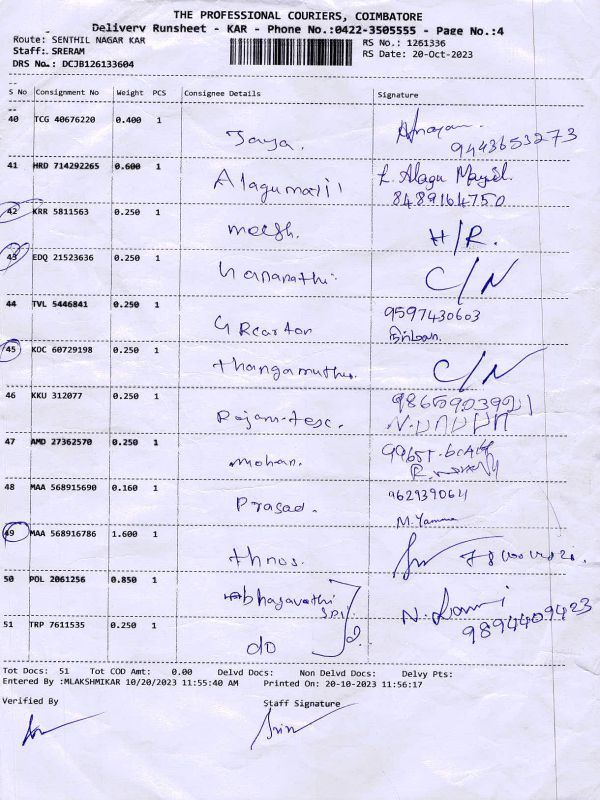 THE PROFESSIONAL COURIERS, COIMBATORE
Delivery Runsheet - KAR - Phone No.:0422-3505555 - Page No.:4
Route: SENTHIL NAGAR KAR RS No.: 1261336
Staff: SRERAM RS Date: 20-Oct-2023
DRS No.: DCJB126133604
S No Consignment No Weight PCS Consignee Details Signature
40 TCG 40676220 0.400 1
Jaya. 9443653273
41 HRD 714292265 0.600 1
Alagumani L. Alagu Mayil.
8489164750
42 KRR 5811563 0.250 1
H/R.
43 EDQ 21523636 0.250 1
C/N
44 TVL 5446841 0.250 1 9597430603
45 KDC 60729198 0.250 1
Thangamuthu. C/N
46 KKU 312077 0.250 1
Rajam-tex.
47 AMD 27362570 0.250 1
mohan.
48 MAA 568915690 0.160 1
Prasad. M. Yamuna
49 MAA 568916786 1.600 1
50 POL 2061256 0.850 1
bhagavathi
51 TRP 7611535 0.250 1 9894409423
do
Tot Docs: 51 Tot COD Amt: 0.00 Delvd Docs: Non Delvd Docs: Delvy Pts:
Entered By :MLAKSHMIKAR 10/20/2023 11:55:40 AM Printed On: 20-10-2023 11:56:17
Verified By Staff Signature